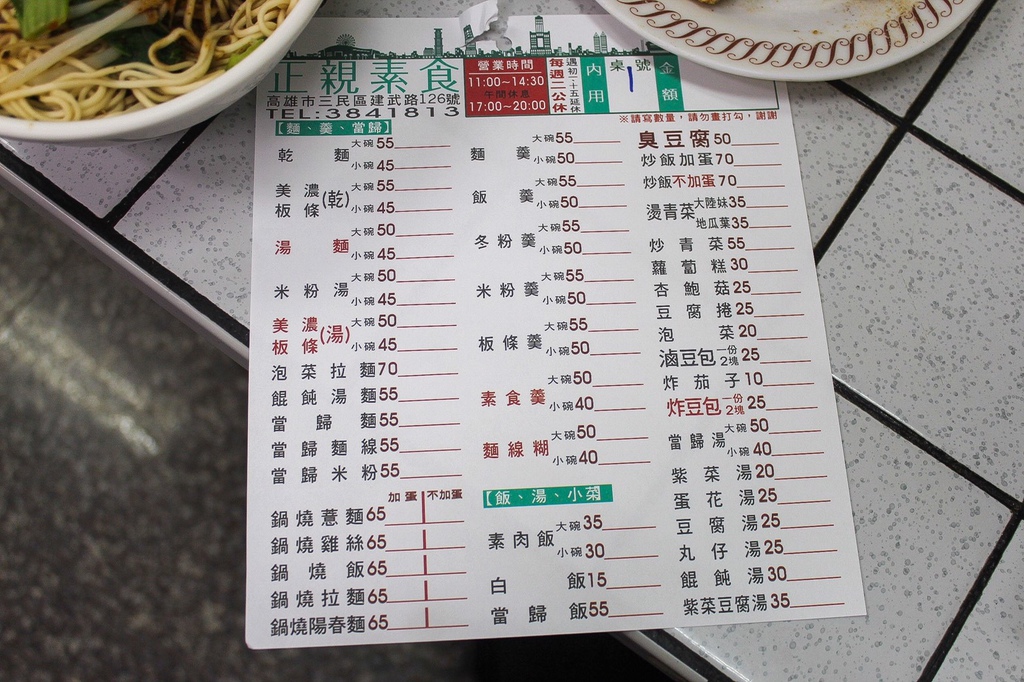 正親素食
高雄市三民區建武路126號
TEL:3841813
營業時間
11:00~14:30
午間休息
17:00~20:00
每週二公休
遇初一十五延休
內用
桌號
1
金額
※請寫數量，請勿畫打勾，謝謝
【麵、羹、當歸】
乾麵 大碗55 小碗45
美濃板條(乾) 大碗55 小碗45
湯麵 大碗50 小碗45
米粉湯 大碗50 小碗45
美濃板條(湯) 大碗50 小碗45
泡菜拉麵70
餛飩湯麵55
當歸麵55
當歸麵線55
當歸米粉55
加蛋 不加蛋
鍋燒薏麵65
鍋燒雞絲65
鍋燒飯65
鍋燒拉麵65
鍋燒陽春麵65
麵羹 大碗55 小碗50
飯羹 大碗55 小碗50
冬粉羹 大碗55 小碗50
米粉羹 大碗55 小碗50
板條羹 大碗55 小碗50
素食羹 大碗50 小碗40
麵線糊 大碗50 小碗40
【飯、湯、小菜】
素肉飯 大碗35 小碗30
白飯15
當歸飯55
臭豆腐50
炒飯加蛋70
炒飯不加蛋70
燙青菜 大陸妹35 地瓜葉35
炒青菜55
蘿蔔糕30
杏鮑菇25
豆腐捲25
泡菜20
滷豆包 一份2塊 25
炸茄子10
炸豆包 一份2塊 25
當歸湯 大碗50 小碗40
紫菜湯20
蛋花湯25
豆腐湯25
丸仔湯25
餛飩湯30
紫菜豆腐湯35